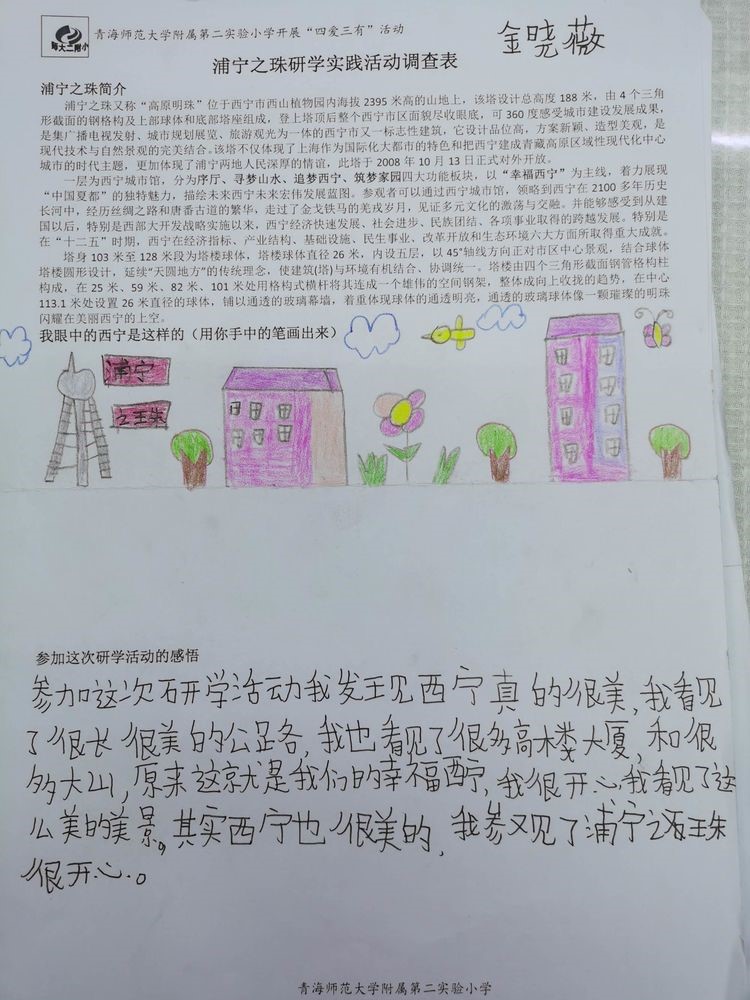 师大二附小
青海师范大学附属第二实验小学开展“四爱三有”活动
金晓薇
浦宁之珠研学实践活动调查表
浦宁之珠简介
浦宁之珠又称“高原明珠”位于西宁市西山植物园内海拔 2395 米高的山地上，该塔设计总高度 188 米，由 4 个三角
形截面的钢格构及上部球体和底部塔座组成，登上塔顶后整个西宁市区面貌尽收眼底，可 360 度感受城市建设发展成果，
是集广播电视发射、城市规划展览、旅游观光为一体的西宁市又一标志性建筑，它设计品位高，方案新颖、造型美观，是
现代技术与自然景观的完美结合。该塔不仅体现了上海作为国际化大都市的特色和把西宁建成青藏高原区域性现代化中心
城市的时代主题，更加体现了浦宁两地人民深厚的情谊，此塔于 2008 年 10 月 13 日正式对外开放。
一层为西宁城市馆，分为序厅、寻梦山水、追梦西宁、筑梦家园四大功能板块，以 “幸福西宁” 为主线，着力展现
“中国夏都”的独特魅力，描绘未来西宁未来宏伟发展蓝图。参观者可以通过西宁城市馆，领略到西宁在 2100 多年历史
长河中，经历丝绸之路和唐番古道的繁华，走过了金戈铁马的羌戎岁月，见证多元文化的激荡与交融。并能够感受到从建
国以后，特别是西部大开发战略实施以来，西宁经济快速发展、社会进步、民族团结、各项事业取得的跨越发展。特别是
在 “十二五” 时期，西宁在经济指标、产业结构、基础设施、民生事业、改革开放和生态环境六大方面所取得重大成就。
塔身 103 米至 128 米段为塔楼球体，塔楼球体直径 26 米，内设五层，以 45°轴线方向正对市区中心景观，结合球体
塔楼圆形设计，延续“天圆地方”的传统理念，使建筑(塔)与环境有机结合、协调统一。塔楼由四个三角形截面钢管格构柱
构成，在 25 米、59 米、82 米、101 米处用格构式横杆将其连成一个雄伟的空间钢架，整体成向上收拢的趋势，在中心
113.1 米处设置 26 米直径的球体，铺以通透的玻璃幕墙，着重体现球体的通透明亮，通透的玻璃球体像一颗璀璨的明珠
闪耀在美丽西宁的上空。
我眼中的西宁是这样的（用你手中的笔画出来）
浦宁
之珠
参加这次研学活动的感悟
参加这次研学活动我发现西宁真的很美，我看见
了很长很美的公路，我也看见了很多高楼大厦，和很
多大山，原来这就是我们的幸福西宁，我很开心我看见了这
么美的美景。其实西宁也很美的，我参观了浦宁之珠
很开心。
青海师范大学附属第二实验小学